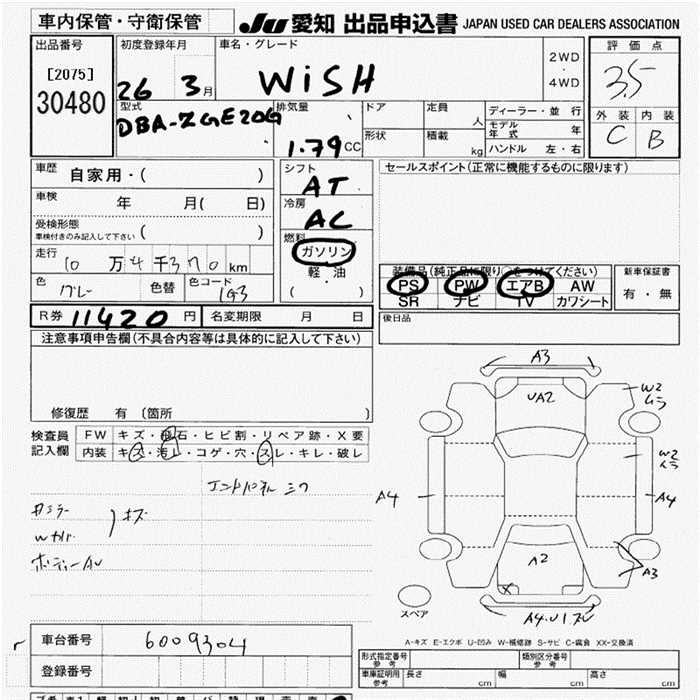 車内保管・守衛保管
JU 愛知 出品申込書 JAPAN USED CAR DEALERS ASSOCIATION
出品番号
[2075]
30480
初度登録年月
26 3月
車名・グレード
WiSH
2WD
・
4WD
評価点
3.5
外装 内装
C B
型式
DBA-ZGE20G
排気量
1.79 CC
ドア
定員
人
形状
積載
kg
ディーラー・並行
モデル年式 年
ハンドル 左・右
車歴
自家用・( )
車検
年 月( 日)
受検形態
車検付きのみ記入して下さい ( )
走行
10万4千370km
色
グレー
色替
色コード
1G3
シフト
AT
冷房
AC
燃料
ガソリン
軽・油
( )
セールスポイント(正常に機能するものに限ります)
装備品(純正品に限り○をつけてください)
PS PW エアB AW
SR ナビ TV カワシート
新車保証書
有・無
R券 11420 円
名変期限 月 日
後日品
注意事項申告欄(不具合内容等は具体的に記入して下さい)
修復歴 有 〔箇所 〕
検査員
記入欄
FW キズ・飛石・ヒビ割・リペア跡・X要
内装 キズ・汚レ・コゲ・穴・スレ・キレ・破レ
エンドパネル
キズ
A3
UA2
W2
ムラ
W2
ムラ
A4
A4
A2
X
A3
スペア
A-キズ E-エクボ U-凹み W-補修跡 S-サビ C-腐食 XX-交換済
車台番号
6009304
登録番号
形式指定番号
参考
類別区分番号
参考
車庫証明用
参考
長さ cm
幅 cm
高さ cm